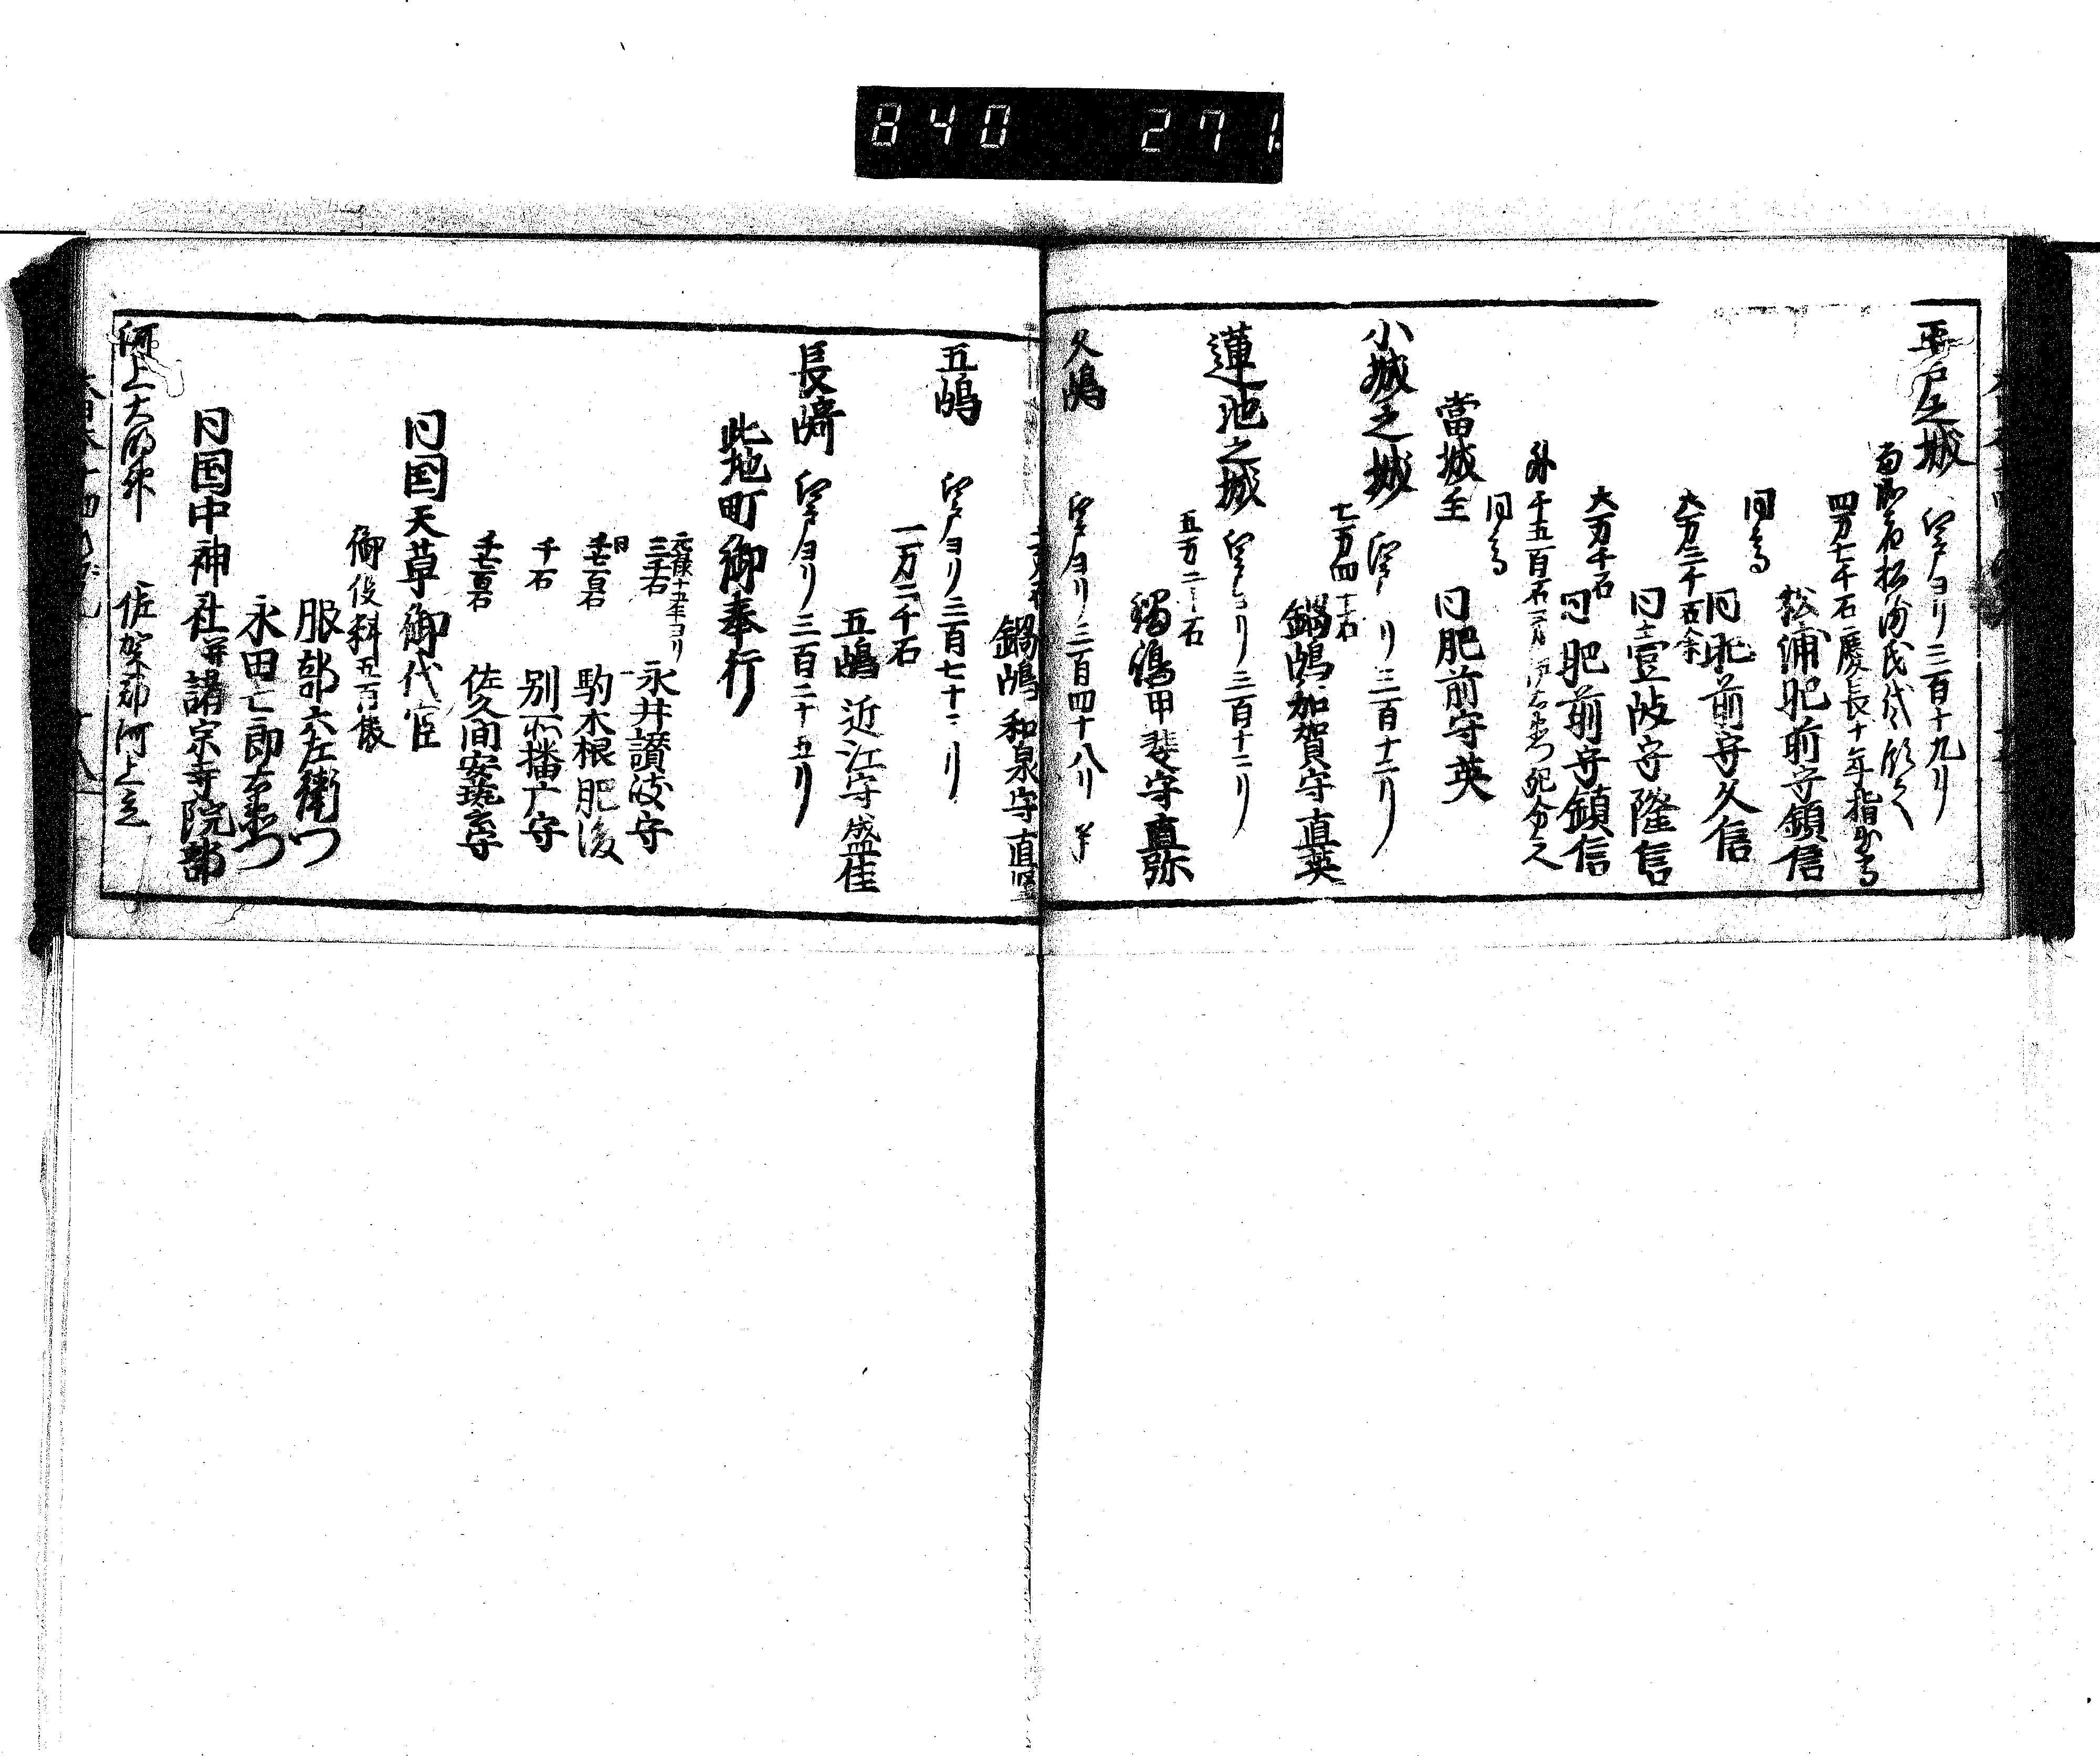 840 271
平戸之城 江戸ヨリ三百十九リ
四万七千石 慶長十年指出高
松浦肥前守鎮信
同高
同肥前守久信
六万三千石余
同壹岐守隆信
六万千石
同肥前守鎮信
外千五百石
同高
當城主 同肥前守英
小城之城 江戸 リ三百十二リ
七万四千石
鍋嶋加賀守直英
蓮池之城 江戸ヨリ三百十二リ
五万二 石
鍋嶋甲斐守直弥
久嶋 江戸ヨリ三百四十八リ半
鍋嶋和泉守直堅
五嶋 江戸ヨリ三百七十二リ
一万二千石
五嶋近江守盛佳
長﨑 江戸ヨリ三百二十五リ
此地町御奉行
元禄十五年ヨリ
三千石
永井讃岐守
同
千七百石
駒木根肥後
千石
別所播广守
千七百石
佐久間安藝守
同国天草御代官
御役料五百俵
服部六左衛门
永田七郎右衛门
同国中神社并諸宗寺院部
河上大明神 佐賀郡河上立